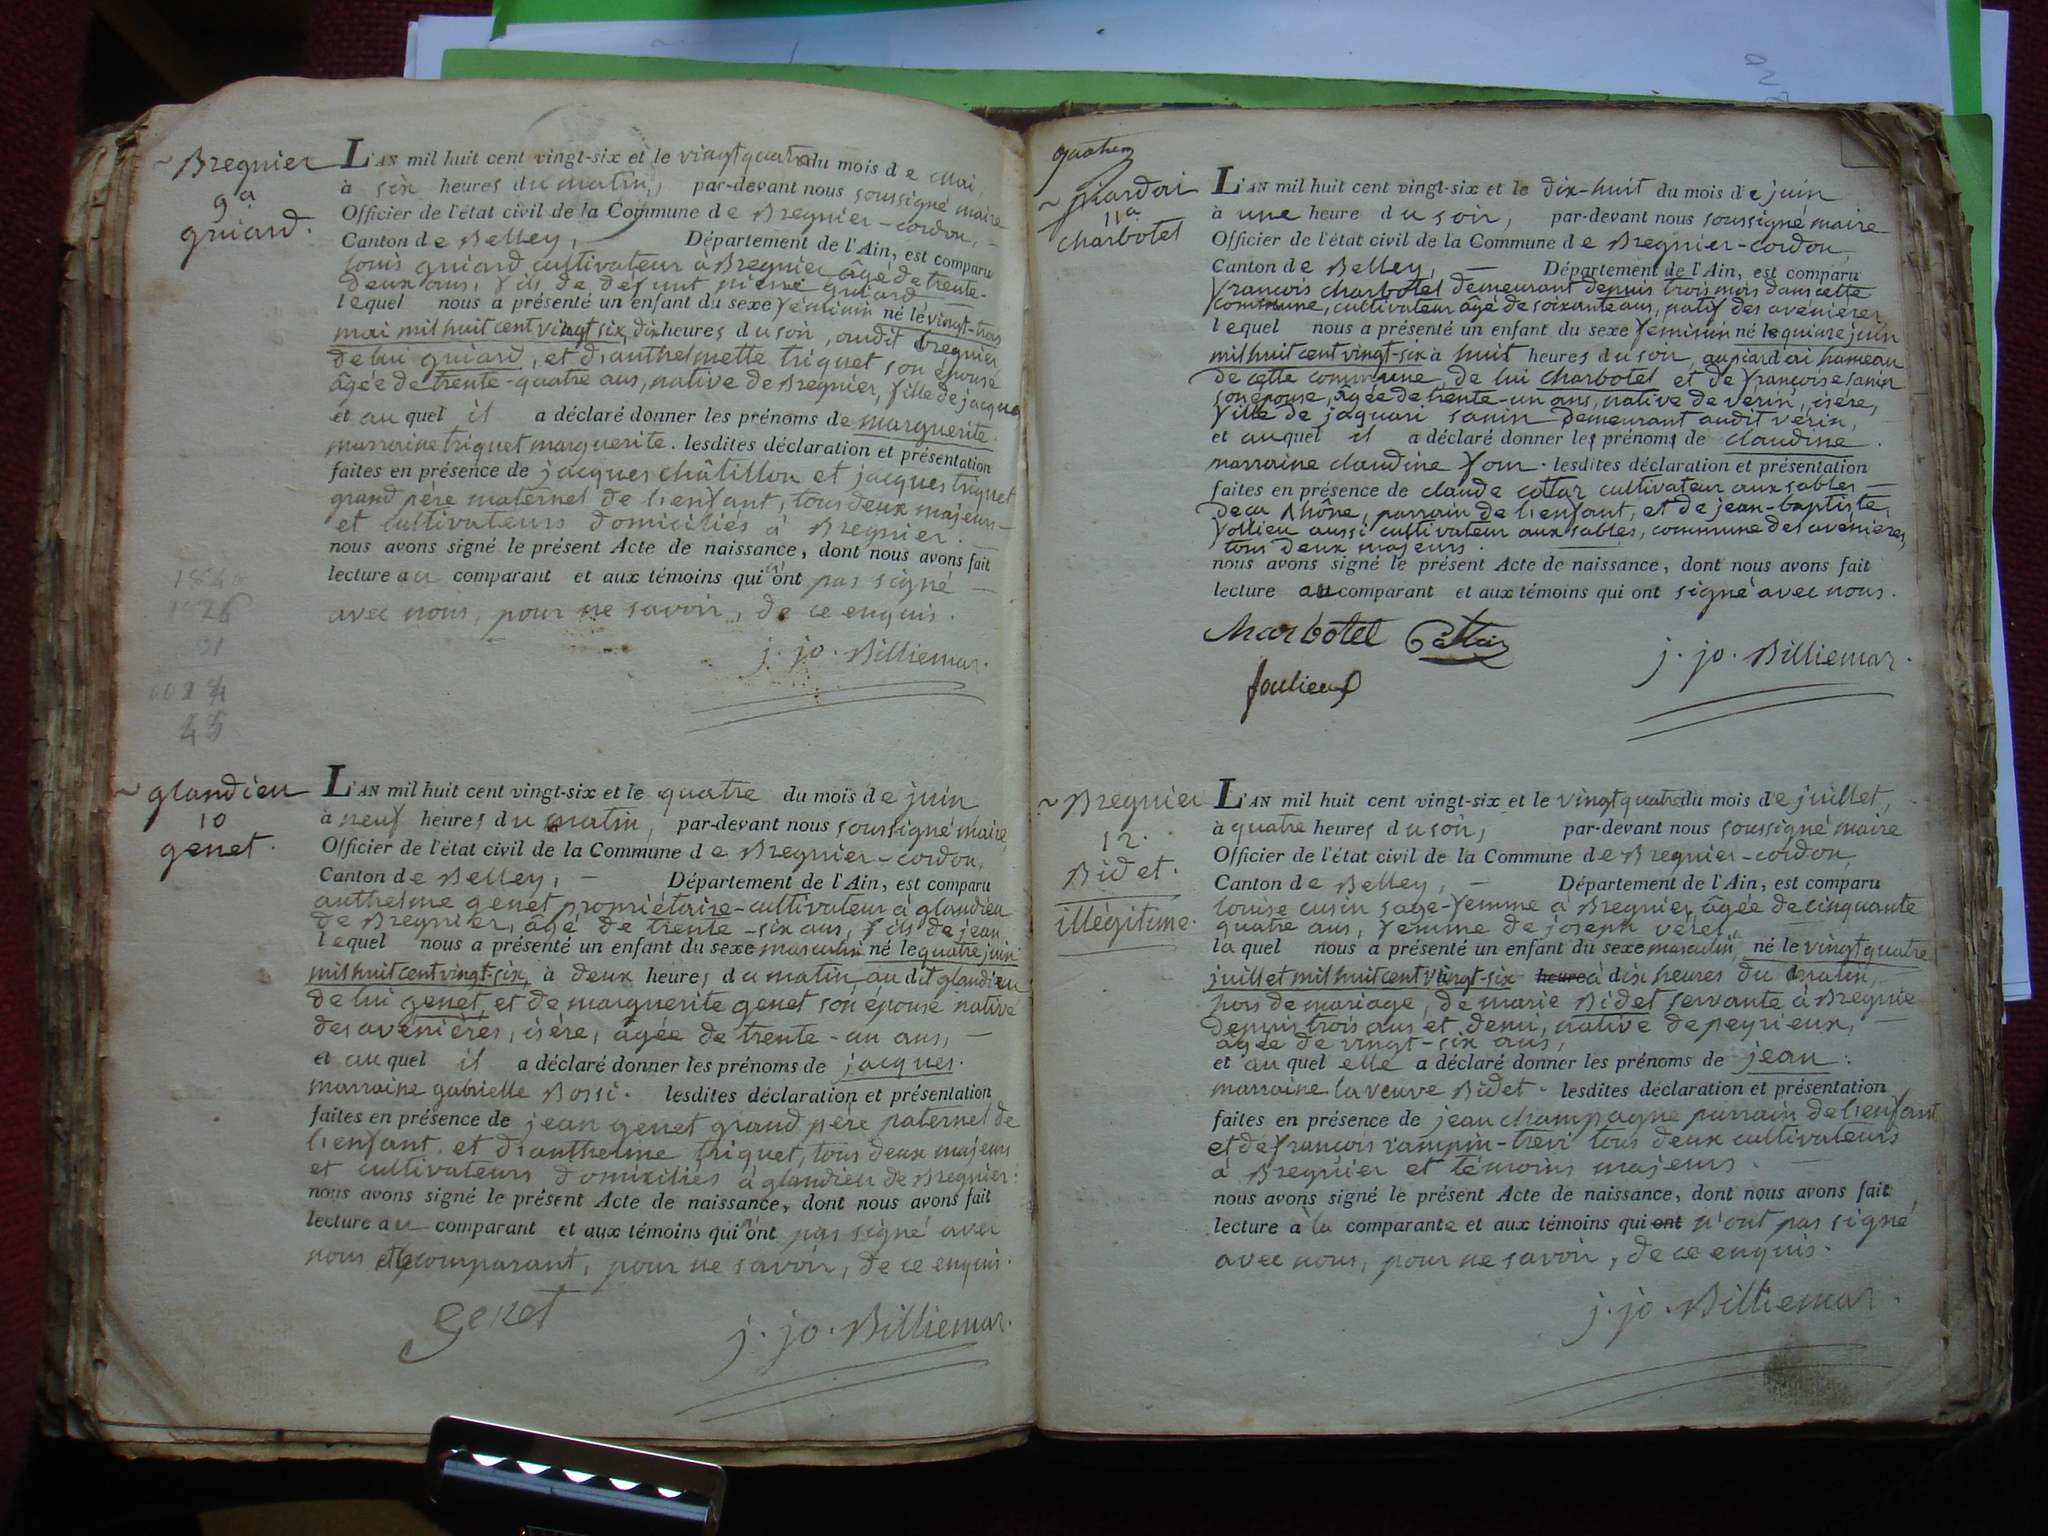 Bregnier
9.a
guiard.
L'AN mil huit cent vingt-six et le vingt quatre du mois de mai,
à six heures du matin, par-devant nous soussigné maire
Officier de l'état civil de la Commune de Bregnier-cordon,
Canton de Belley, Département de l'Ain, est comparu
louis guiard cultivateur à Bregnier âgé de trente-
deux ans, fils de défunt pierre guiard
lequel nous a présenté un enfant du sexe féminin né le vingt-trois
mai mil huit cent vingt six, dix heures du soir, audit bregnier
de lui guiard, et d'anthelmette triquet son épouse
âgée de trente-quatre ans, native de Bregnier, fille de jacques
et auquel il a déclaré donner les prénoms de marguerite.
marraine triquet marguerite. lesdites déclaration et présentation
faites en présence de jacques châtillon et jacques triquet
grand père maternel de l'enfant, tous deux majeurs
et cultivateurs domiciliés à Bregnier.
nous avons signé le présent Acte de naissance, dont nous avons fait
lecture au comparant et aux témoins qui n'ont pas signé
avec nous, pour ne savoir, de ce enquis.
j. jo. Billiemaz.
glandieu
10
genet.
L'AN mil huit cent vingt-six et le quatre du mois de juin
à neuf heures du matin, par-devant nous soussigné maire
Officier de l'état civil de la Commune de Bregnier-cordon,
Canton de Belley, Département de l'Ain, est comparu
anthelme genet propriétaire-cultivateur à glandieu
de Bregnier, âgé de trente-six ans, fils de jean
lequel nous a présenté un enfant du sexe masculin né le quatre juin
mil huit cent vingt-six, à deux heures du matin au dit glandieu
de lui genet, et de marguerite genet son épouse native
des avenières, isère, âgée de trente-un ans,
et auquel il a déclaré donner les prénoms de jacques.
marraine gabrielle Bossi. lesdites déclaration et présentation
faites en présence de jean genet grand père paternel de
l'enfant, et d'anthelme triquet, tous deux majeurs
et cultivateurs domiciliés à glandieu de Bregnier.
nous avons signé le présent Acte de naissance, dont nous avons fait
lecture au comparant et aux témoins qui n'ont pas signé avec
nous et le comparant, pour ne savoir, de ce enquis.
genet
j. jo. Billiemaz.
11.a
charbotel
L'AN mil huit cent vingt-six et le dix-huit du mois de juin
à une heure du soir, par-devant nous soussigné maire
Officier de l'état civil de la Commune de Bregnier-cordon,
Canton de Belley, Département de l'Ain, est comparu
françois charbotel demeurant depuis trois mois dans cette
commune, cultivateur âgé de soixante ans, natif des avenières
lequel nous a présenté un enfant du sexe féminin né le quinze juin
mil huit cent vingt-six à huit heures du soir, au hameau
de cette commune, de lui charbotel et de françoise sanin
son épouse, âgée de trente-un ans, native de verin, isère,
fille de sanin demeurant audit verin,
et auquel il a déclaré donner les prénoms de claudine.
marraine claudine four. lesdites déclaration et présentation
faites en présence de claude cottaz cultivateur aux sables
deça Rhône, parrain de l'enfant, et de jean-baptiste
follieu aussi cultivateur aux sables, commune des avenieres,
tous deux majeurs.
nous avons signé le présent Acte de naissance, dont nous avons fait
lecture au comparant et aux témoins qui ont signé avec nous.
Charbotel Cottaz
j. jo. Billiemaz.
foulieux
Bregnier
12.
Bidet.
illégitime.
L'AN mil huit cent vingt-six et le vingt quatre du mois de juillet,
à quatre heures du soir, par-devant nous soussigné maire
Officier de l'état civil de la Commune de Bregnier-cordon,
Canton de Belley, Département de l'Ain, est comparu
louise cusin sage-femme à Bregnier, âgée de cinquante
quatre ans, femme de joseph veret,
laquel nous a présenté un enfant du sexe masculin, né le vingt quatre
juillet mil huit cent vingt-six heure à dix heures du matin,
hors de mariage, de marie Bidet servante à Bregnier
depuis trois ans et demi, native de peyrieux,
âgée de vingt-six ans,
et auquel elle a déclaré donner les prénoms de jean.
marraine la veuve Bidet. lesdites déclaration et présentation
faites en présence de jean champagne parrain de l'enfant
et de françois rampin-trevi tous deux cultivateurs
à Bregnier et témoins majeurs.
nous avons signé le présent Acte de naissance, dont nous avons fait
lecture à la comparante et aux témoins qui ont n'ont pas signé
avec nous, pour ne savoir, de ce enquis.
j. jo. Billiemaz.